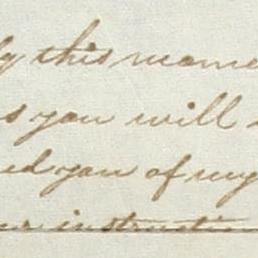 this mome
you will
ed you of my
instructi